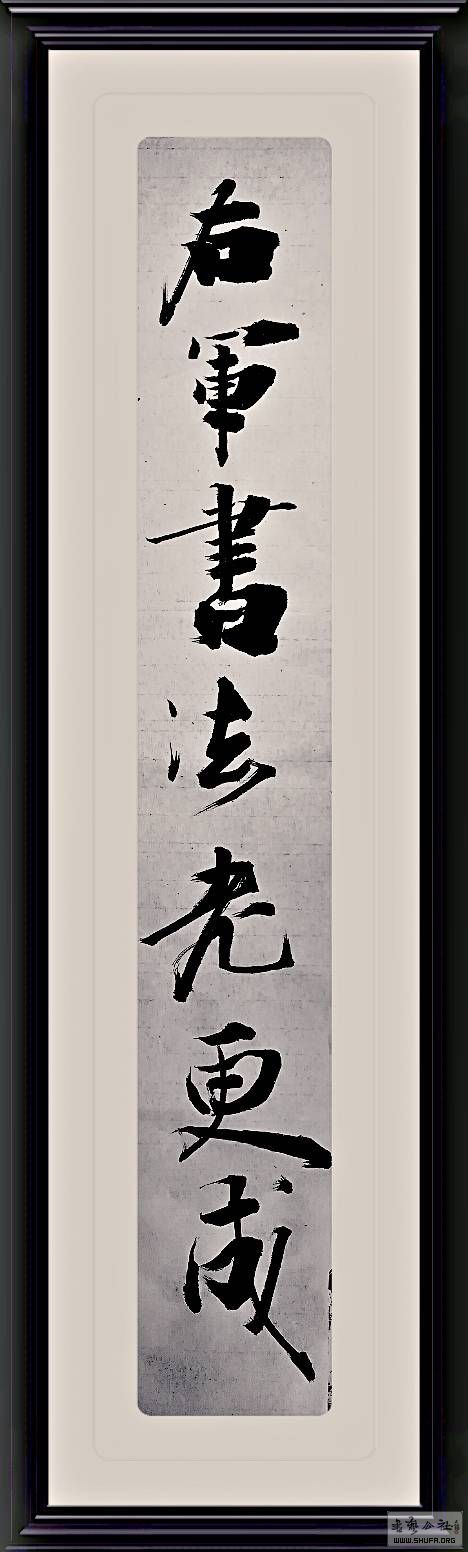 右軍書法老更成
書藝公社
WWW.SHUFA.ORG